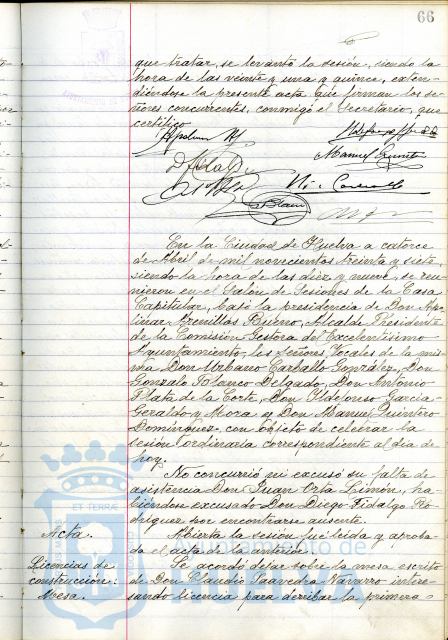 66
que tratar, se levantó la sesión, siendo la
hora de las veinte y una y quince, exten-
diéndose la presente acta que firman los se-
ñores concurrentes, conmigo el Secretario, que
certifico.
Manuel Quintero
En la Ciudad de Huelva a catorce
de Abril de mil novecientos treinta y siete
siendo la hora de las diez y nueve, se reu-
nieron en el Salón de Sesiones de la Casa
Capitular, bajo la presidencia de Don Apo-
linar Arenillas Bueno, Alcalde Presidente
de la Comisión Gestora del Excelentísimo
Ayuntamiento, los señores Vocales de la mis-
ma Don Urbano Carballo González, Don
Gonzalo Blanco Delgado, Don Antonio
Plata de la Corte, Don Ildefonso García-
Geraldo y Mora y Don Manuel Quintero
Domínguez, con objeto de celebrar la
sesión ordinaria correspondiente al día de
hoy.
No concurrió ni excusó su falta de
asistencia Don Juan Orta Limón, ha-
biéndose excusado Don Diego Fidalgo Ro-
dríguez por encontrarse ausente.
Acta. Abierta la sesión fué leida y aproba-
da el acta de la anterior.
Licencias de Se acordó dejar sobre la mesa escrito
construcción: de Don Claudio Saavedra Navarro intere-
Mesa. sando licencia para derribar la primera
ET TERRÆ